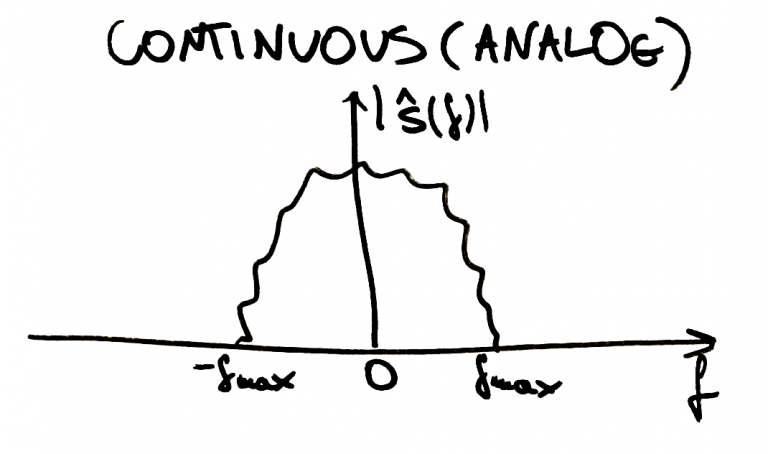 CONTINUOUS (ANALOG)
|ŝ(f)|
-fmax 0 fmax f